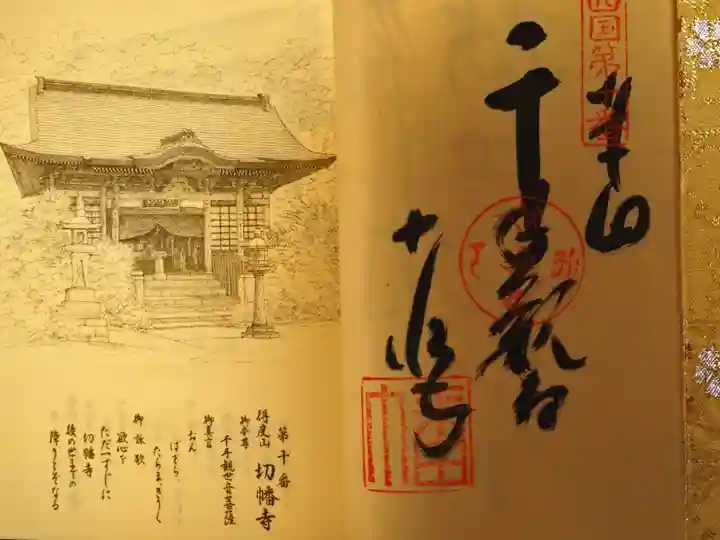 四国第十番
奉納
千手観音
切幡寺
第十番
得度山 切幡寺
御本尊
千手観世音菩薩
御真言
おん
ばざら
たらま きりく
御詠歌
欲心を
ただ一すじに
切幡寺
後の世までの
障りとぞなる